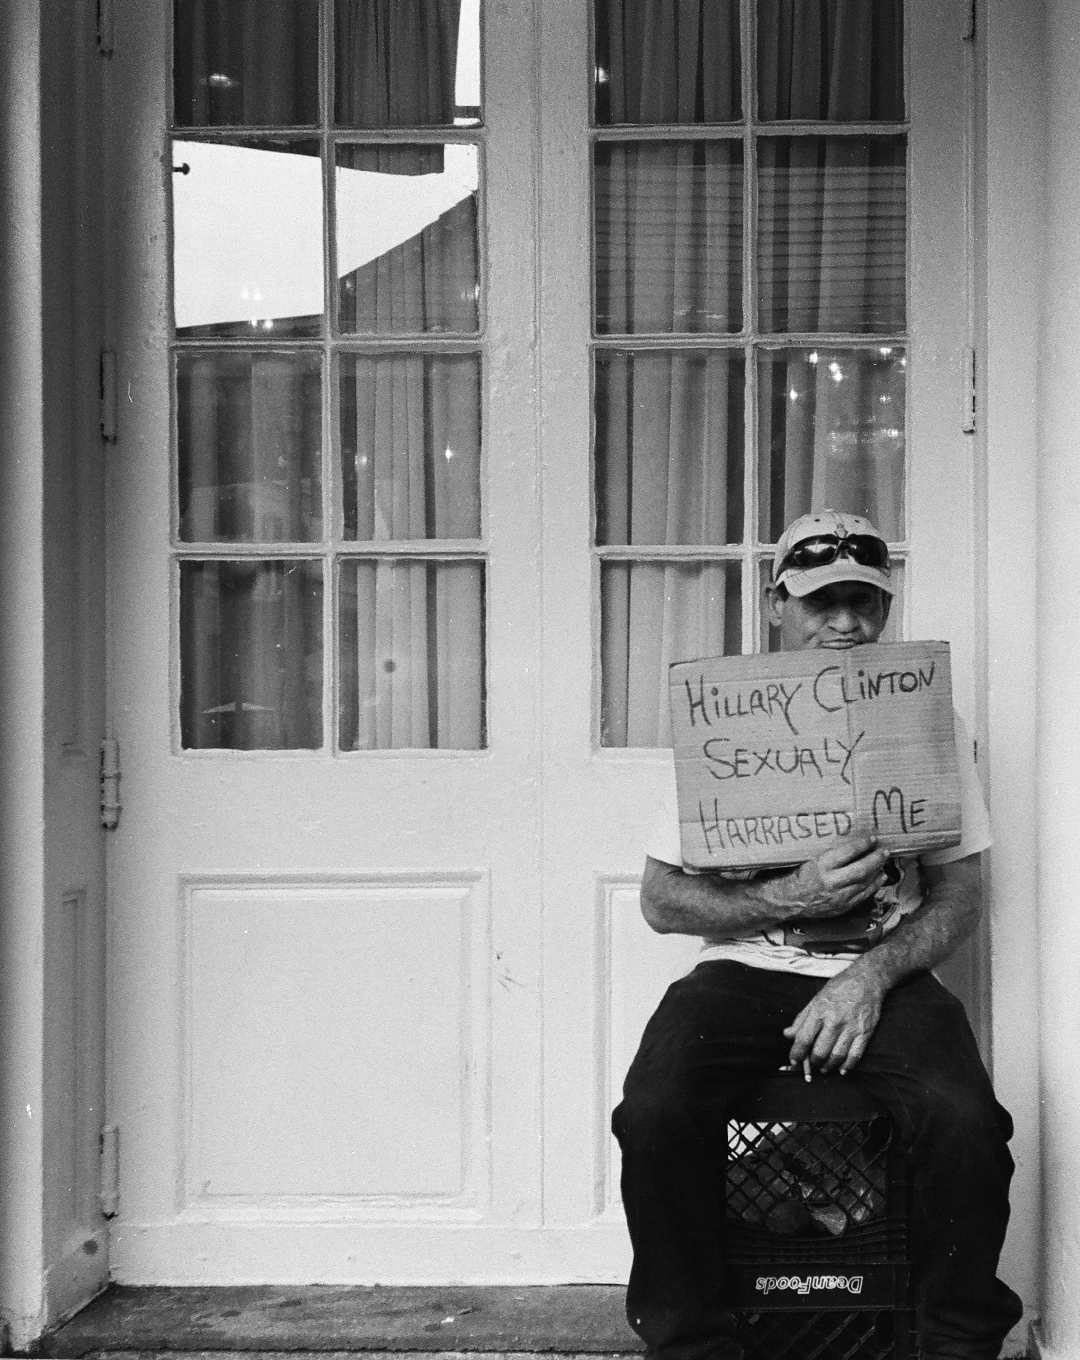 HiLLARY CLiNTON
SEXUALY
HARRASED ME
DeanFoods